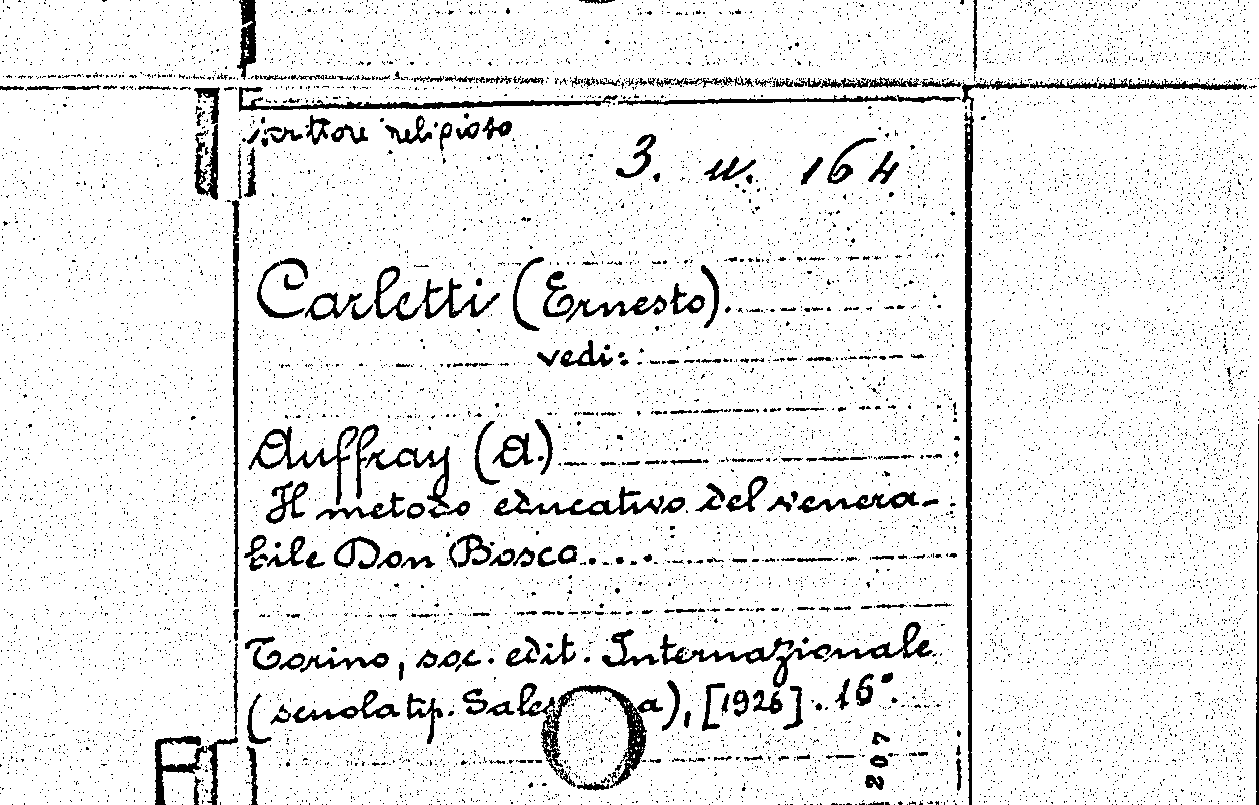 scrittore religioso
3. w. 164
Carletti (Ernesto).
vedi:
Auffray (A.)
Il metodo educativo del venera-
bile Don Bosco....
Torino, soc. edit. Internazionale
(scuola tip. Sale a), [1926]. 16°.
207